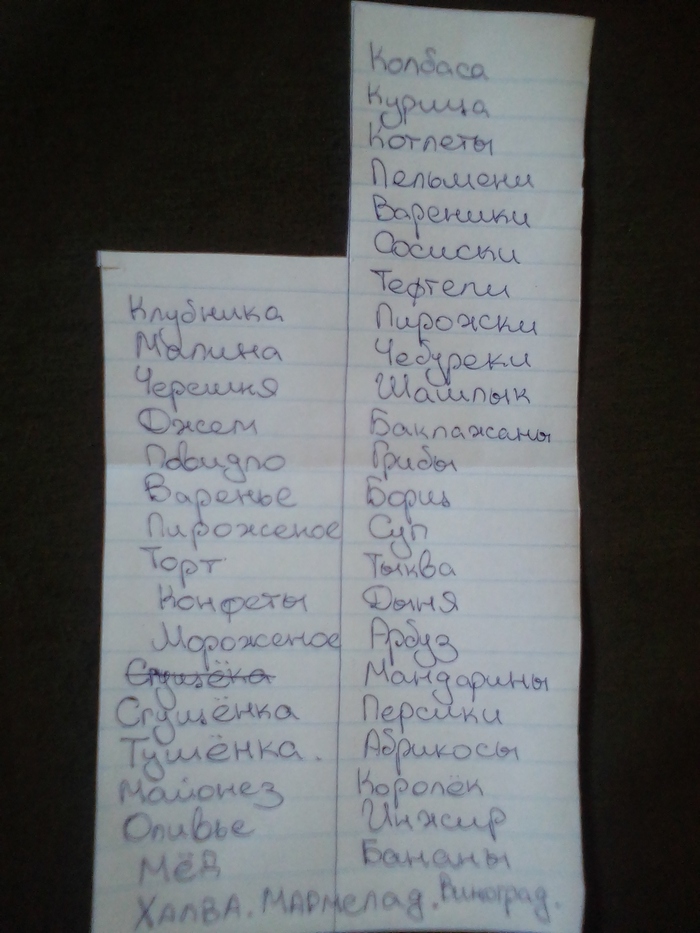 Колбаса
Курица
Котлеты
Пельмени
Вареники
Сосиски
Тефтели
Пирожски
Чебуреки
Шашлык
Баклажаны
Грибы
Борщ
Суп
Тыква
Дыня
Арбуз
Мандарины
Персики
Абрикосы
Королёк
Инжир
Бананы
Клубника
Малина
Черешня
Джем
Повидло
Варенье
Пироженое
Торт
Конфеты
Мороженое
Сгущёка
Сгущёнка
Тушёнка.
Майонез
Оливье
Мёд
Халва. Мармелад. Виноград.